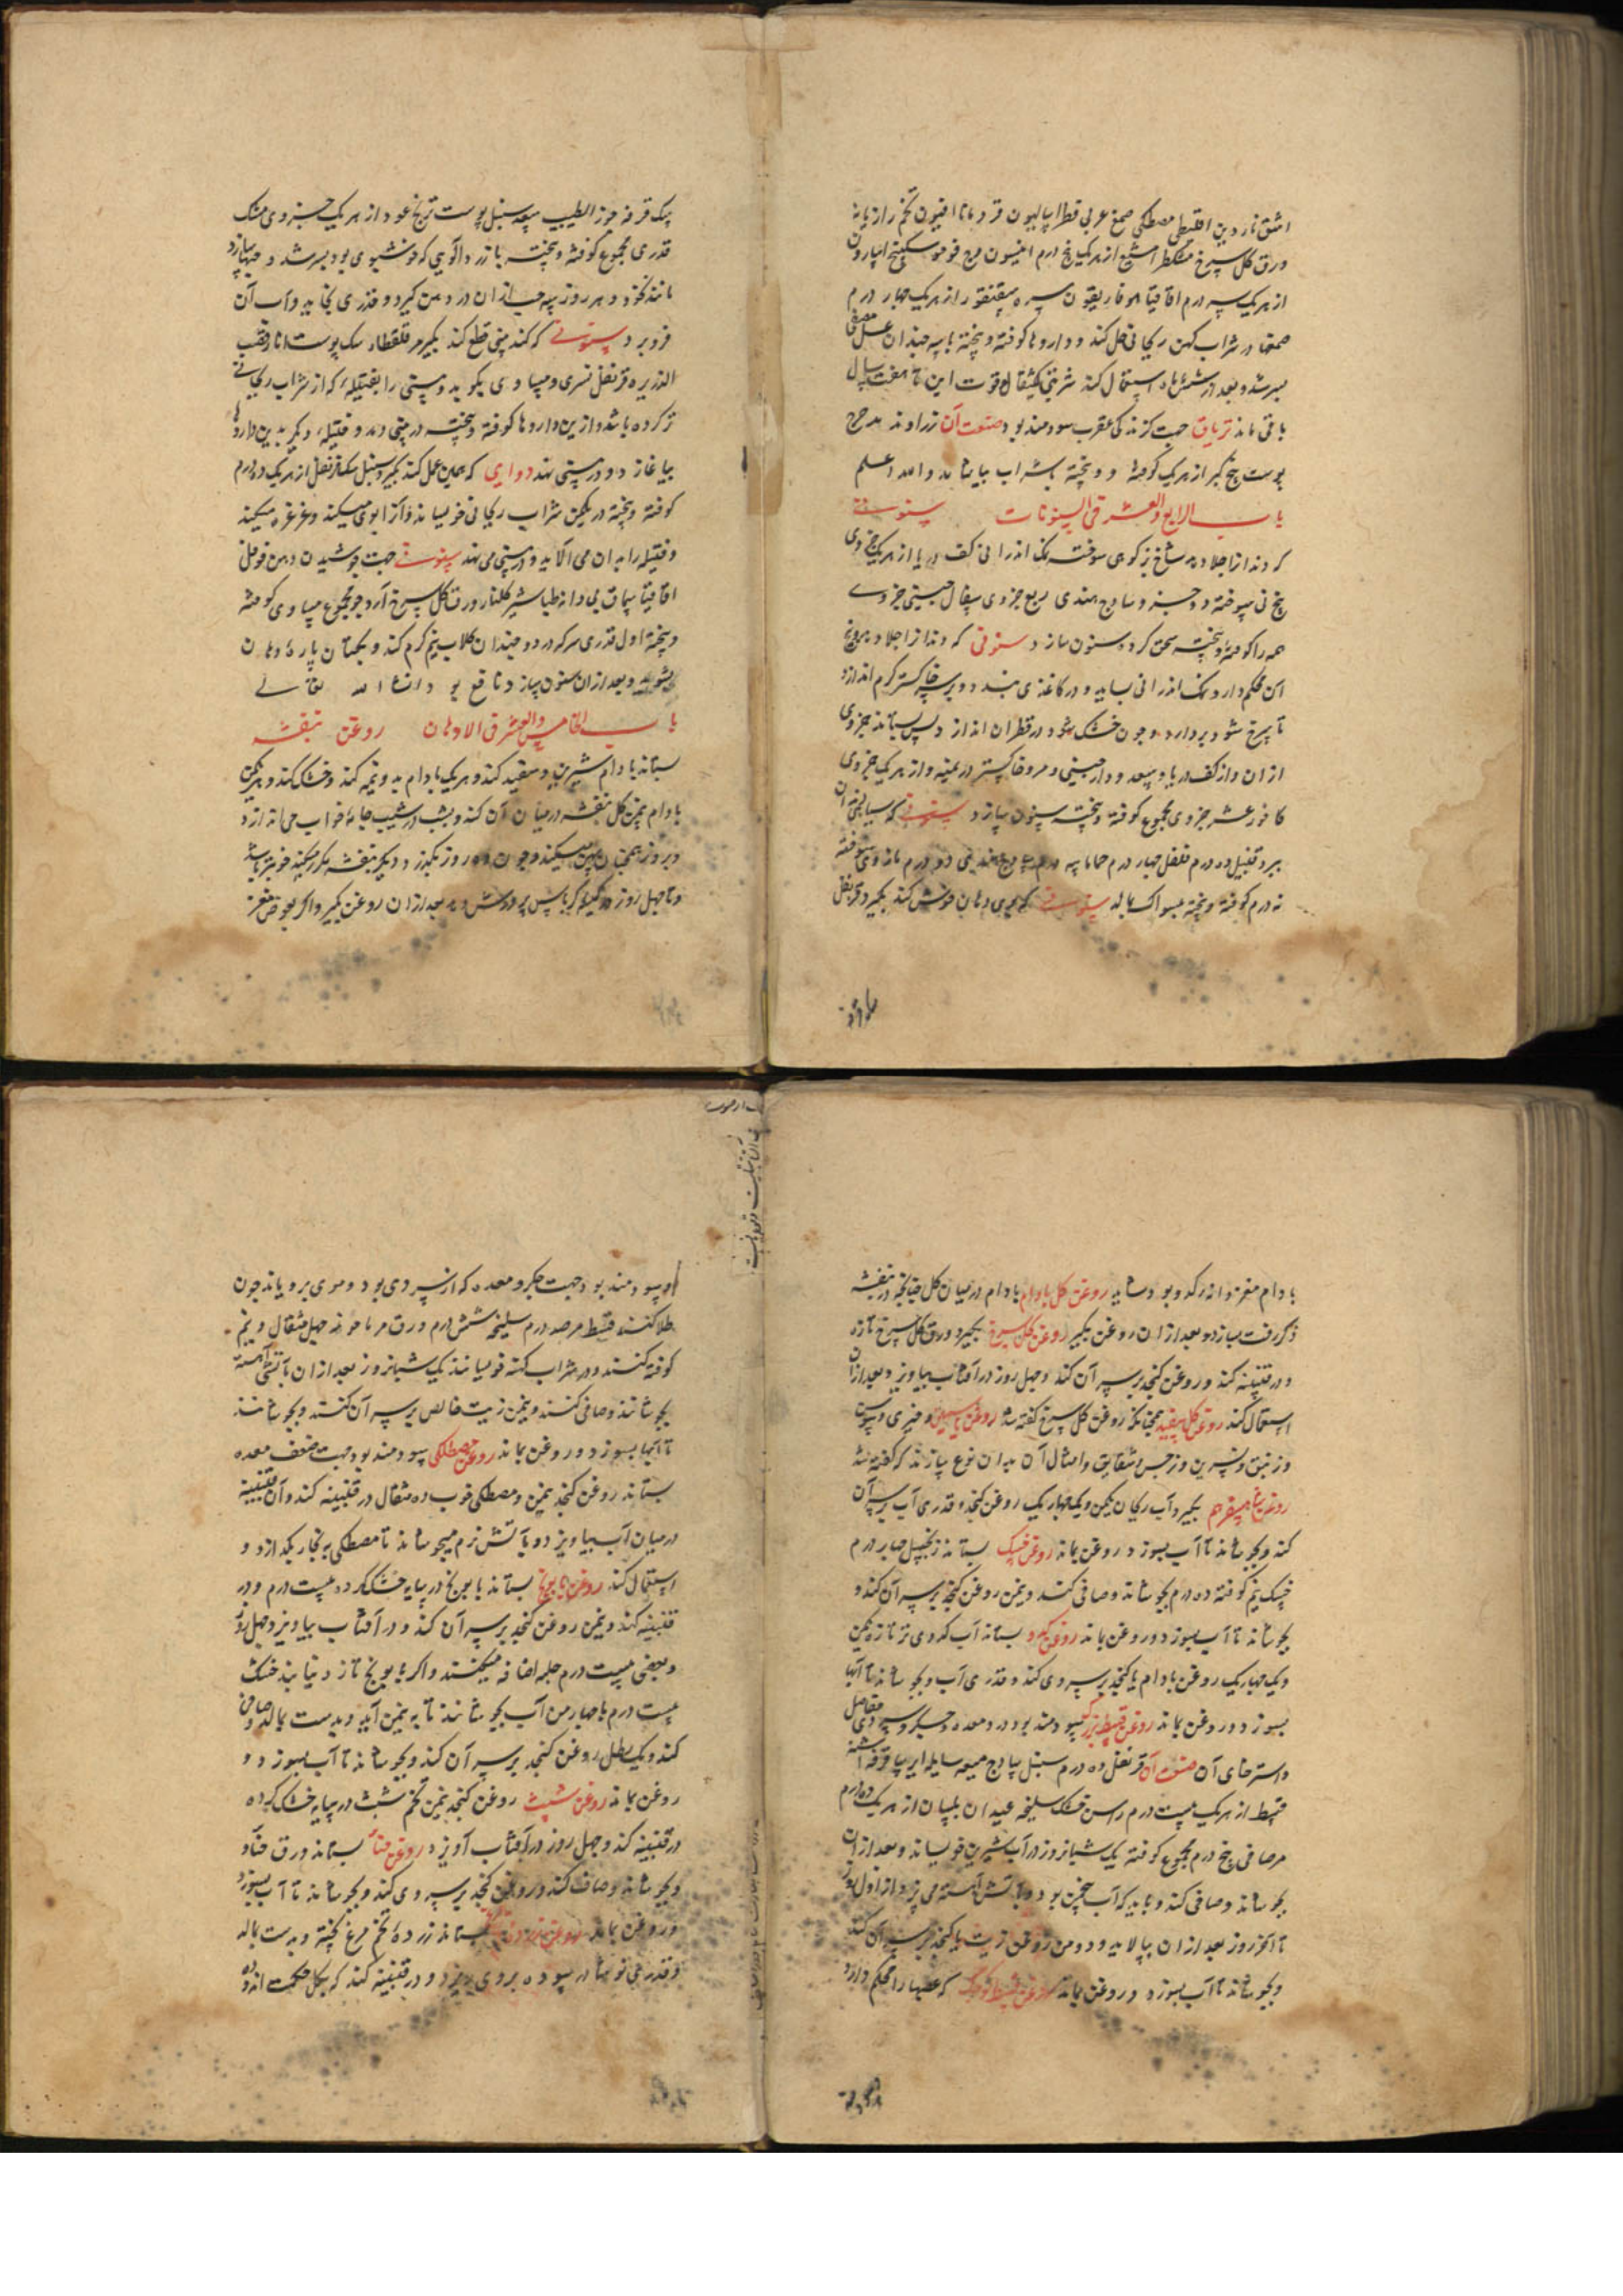 اشق ناردین اقلیطی مصطکی صمغ عربی قطراسالیون قردمانا افیون تخم رازیانه
ورق گل سرخ مشکطرامشیع از هر یک پنج درم انیسون وج فو مو سکبینج اسارون
از هر یک سه درم اقاقیا هوفاریقون سره سقنقور از هر یک چهار درم
صمغها در شراب کهن ریحانی حل کند و داروها کوفته و بیخته با سه چندان عسل مصفی
بسرشد و بعد از شش ماه استعمال کند شربتی یکمثقال قوت این تا هفت سال
باقی ماند تریاق جهت کزندکی عقرب سودمند بود صنعت آن زراوند مدحرج
پوست بیخ کبر از هر یک کوفته و بیخته بشراب بیاشامد والله اعلم
باب الرابع والعشر فی السنونات سنونی
که دندانرا جلا دهد شاخ بز کوهی سوخته نمک اندرانی کف دریا از هر یک جزوی
بیخ نی سوخته دو جزو سادج هندی ربع جزوی سفال چینی جزوی
همه را کوفته و بیخته سحق کرده سنون سازد سنونی که دندانرا جلا دهد و بیخ
آن محکم دارد نمک اندرانی بساید و در کاغذی بندد و بر سر خاکستر کرم اندازد
تا سرخ شود بردارد و چون خشک شود در قطران اندازد پس بستاند جزوی
از آن و از کف دریا و سعد و دارچینی و مر و خاکستر درمنه از هر یک جزوی
کافور عشر جزوی مجموع کوفته و بیخته سنون سازد سنونی که سیاهی دندان
ببرد زنجبیل ده درم فلفل چهار درم حماما سه درم سادج هندی دو درم مازوی سوخته
نه درم کوفته و بیخته بمسواک بمالد سنونی که بوی دهان خوش کند بگیرد قرنفل
سک قرفه جوز الطیب سعد سنبل پوست ترنج عود از هر یک جزوی مشک
قدری مجموع کوفته و بیخته با زردآلویی که خوشبوی بود بسرشد و حبها سازد
مانند نخود و هر روز سه حب از آن در دهن گیرد و قدری بخاید و آب آن
فرو برد سنونی که کند بینی قطع کند بگیرد مر قلقطار سک پوست انار قصب
الذریره قرنفل نسری مساوی بکوبد و بینی را بفتیله که از شراب ریحانی
تر کرده باشد و ازین داروها کوفته و بیخته در بینی دمد و فتیله دیگر بدین داروها
بیاغازد و در بینی نهد دوایی که همین عمل کند بگیرد سنبل سک قرنفل از هر یک ده درم
کوفته و بیخته در یکمن شراب ریحانی خویساند و آنرا بوی میکند و غرغره میکند
و فتیله را بدان می آلاید و در بینی می نهد سنونی جهت جوشیدن دهن فوفل
اقاقیا سماق بی دانه طباشیر گلنار ورق گل سرخ آرد جو مجموع مساوی کوفته
و بیخته اول قدری سرکه در دو چندان گلاب نیم گرم کند و بکتان پاره دهان
بشوید و بعد از آن سنون سازد نافع بود انشاء الله تعالی
باب الخامس والعشر فی الادهان روغن بنفشه
بستاند بادام شیرین و سفید کند و هر یک بادام بدو نیمه کند و خشک کند و بهر یکمن
بادام نیمن گل بنفشه در میان آن کند و بشب در شیب جامه خواب می اندازد
و بروز همچنان پهن میکند و چون ده روز بگذرد دیگر بنفشه مکرر میکند خوبتر باشد
و تا چهل روز در کیله کرباس پرورش دهد بعد از آن روغن بگیرد و اگر بعوض مغز
بادام مغز دانه کدو بود شاید روغن گل بادام بادام در میان گل چنانچه در بنفشه
ذکر رفت بسازد و بعد از آن روغن بگیرد روغن گل سرخ بگیرد ورق گل سرخ تازه
و در قنینه کند و روغن کنجد بر سر آن کند و چهل روز در آفتاب بیاویزد و بعد از آن
استعمال کند روغن گل سفید همچنانکه روغن گل سرخ گفته شد روغن یاسمین و خیری و سوسن
و زنبق و نسرین و نرجس و شقایق و امثال آن بدان نوع سازند که گفته شد
روغن شاهسفرهم بگیرد آب ریحان یکمن و یک چهاریک روغن کنجد و قدری آب بر سر آن
کند و بجوشاند تا آب بسوزد و روغن بماند روغن خسک بستاند زنجبیل چهار درم
خسک نیم کوفته ده درم بجوشاند و صافی کند و نیمن روغن کنجد بر سر آن کند و
بجوشاند تا آب بسوزد و روغن بماند روغن کدو بستاند آب کدوی تر تازه یکمن
و یک چهاریک روغن بادام یا کنجد بر سر وی کند و قدری آب و بجوشاند تا آبها
بسوزد و روغن بماند روغن قسط بزرگ سودمند بود درد معده و جگر و سردی مفاصل
و استرخای آن صنعت آن قرنفل ده درم سنبل سادج میعه سایله ایرسا قرفه اشنه
قسط از هر یک بیست درم راسن خشک سلیخه عیدان بلسان از هر یک ده درم
مر صافی پنج درم مجموع کوفته یک شبانروز در آب شیرین خویساند و بعد از آن
بجوشاند و صافی کند و باید که آب پنجمن بود و بآتش آهسته می پزد از اول روز
تا آخر روز بعد از آن بپالاید و دو من روغن زیت یا کنجد بر سر آن کند
و بجوشاند تا آب بسوزد و روغن بماند روغن قسط کوچک که عصبها را محکم دارد
او سودمند بود جهت جگر و معده که از سردی بود و موی برویاند چون
طلا کنند قسط مر صد درم سلیخه شش درم ورق مرماحوز چهل مثقال و نیم
کوفته کنند و در شراب کهنه خویسانند یک شبانروز بعد از آن بآتش آهسته
بجوشانند و صافی کنند و نیمن زیت خالص بر سر آن کنند و بجوشانند
تا آبها بسوزد و روغن بماند روغن مصطکی سودمند بود جهت ضعف معده
بستاند روغن کنجد نیمن و مصطکی خوب ده مثقال در قنینه کند و آن قنینه
در میان آب بیاویزد و بآتش نرم میجوشاند تا مصطکی به بخار بگدازد و
استعمال کند روغن بابونج بستاند بابونج در سایه خشک کرده بیست درم و در
قنینه کند و نیمن روغن کنجد بر سر آن کند و در آفتاب بیاویزد چهل روز
و بعضی بیست درم حلبه اضافه میکنند و اگر بابونج تازه نیابند خشک
بیست درم با چهار من آب بجوشانند تا به نیمن آید و بدست بمالد و صافی
کند و یک رطل روغن کنجد بر سر آن کند و بجوشاند تا آب بسوزد و
روغن بماند روغن شبث روغن کنجد نیمن تخم شبث در سایه خشک کرده
در قنینه کند و چهل روز در آفتاب آویزد روغن حنا بستاند ورق حنا و
و بجوشاند و صاف کند و روغن کنجد بر سر وی کند و بجوشاند تا آب بسوزد
و روغن بماند بستاند زرده تخم مرغ پخته و بدست بمالد
و قدری نوشادر سوده بروی ریزد و در قنینه کند که بگل حکمت اندوده